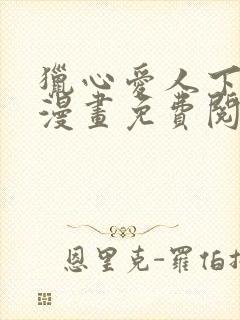 獵心愛人下
漫畫免費閱
恩里克-羅伯